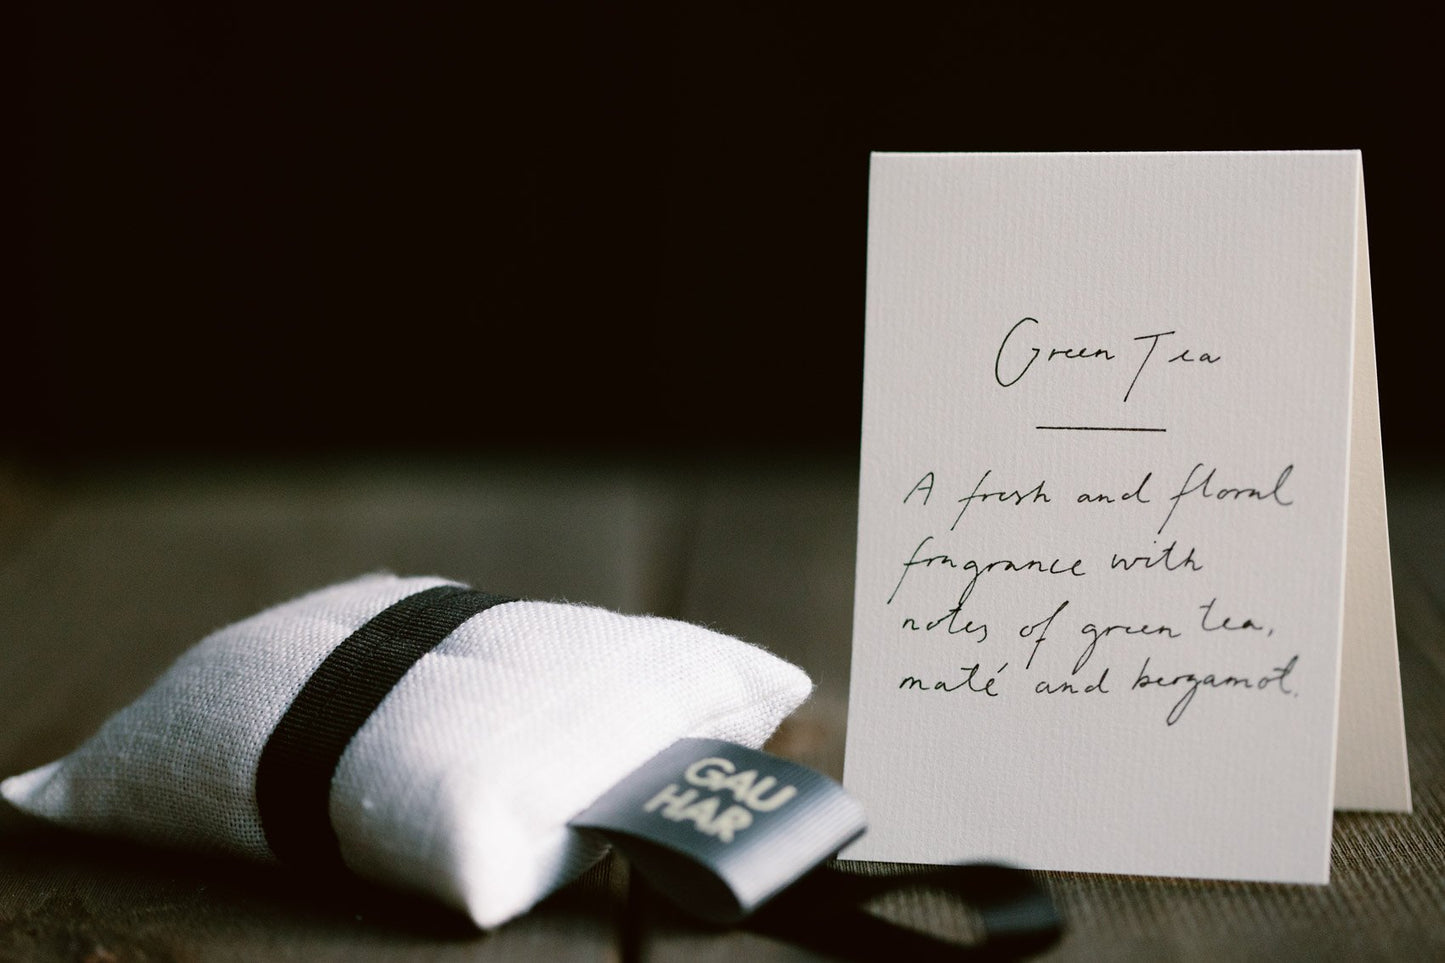 Green Tea
A fresh and floral
fragrance with
notes of green tea,
maté and bergamot.
GAU
HAR